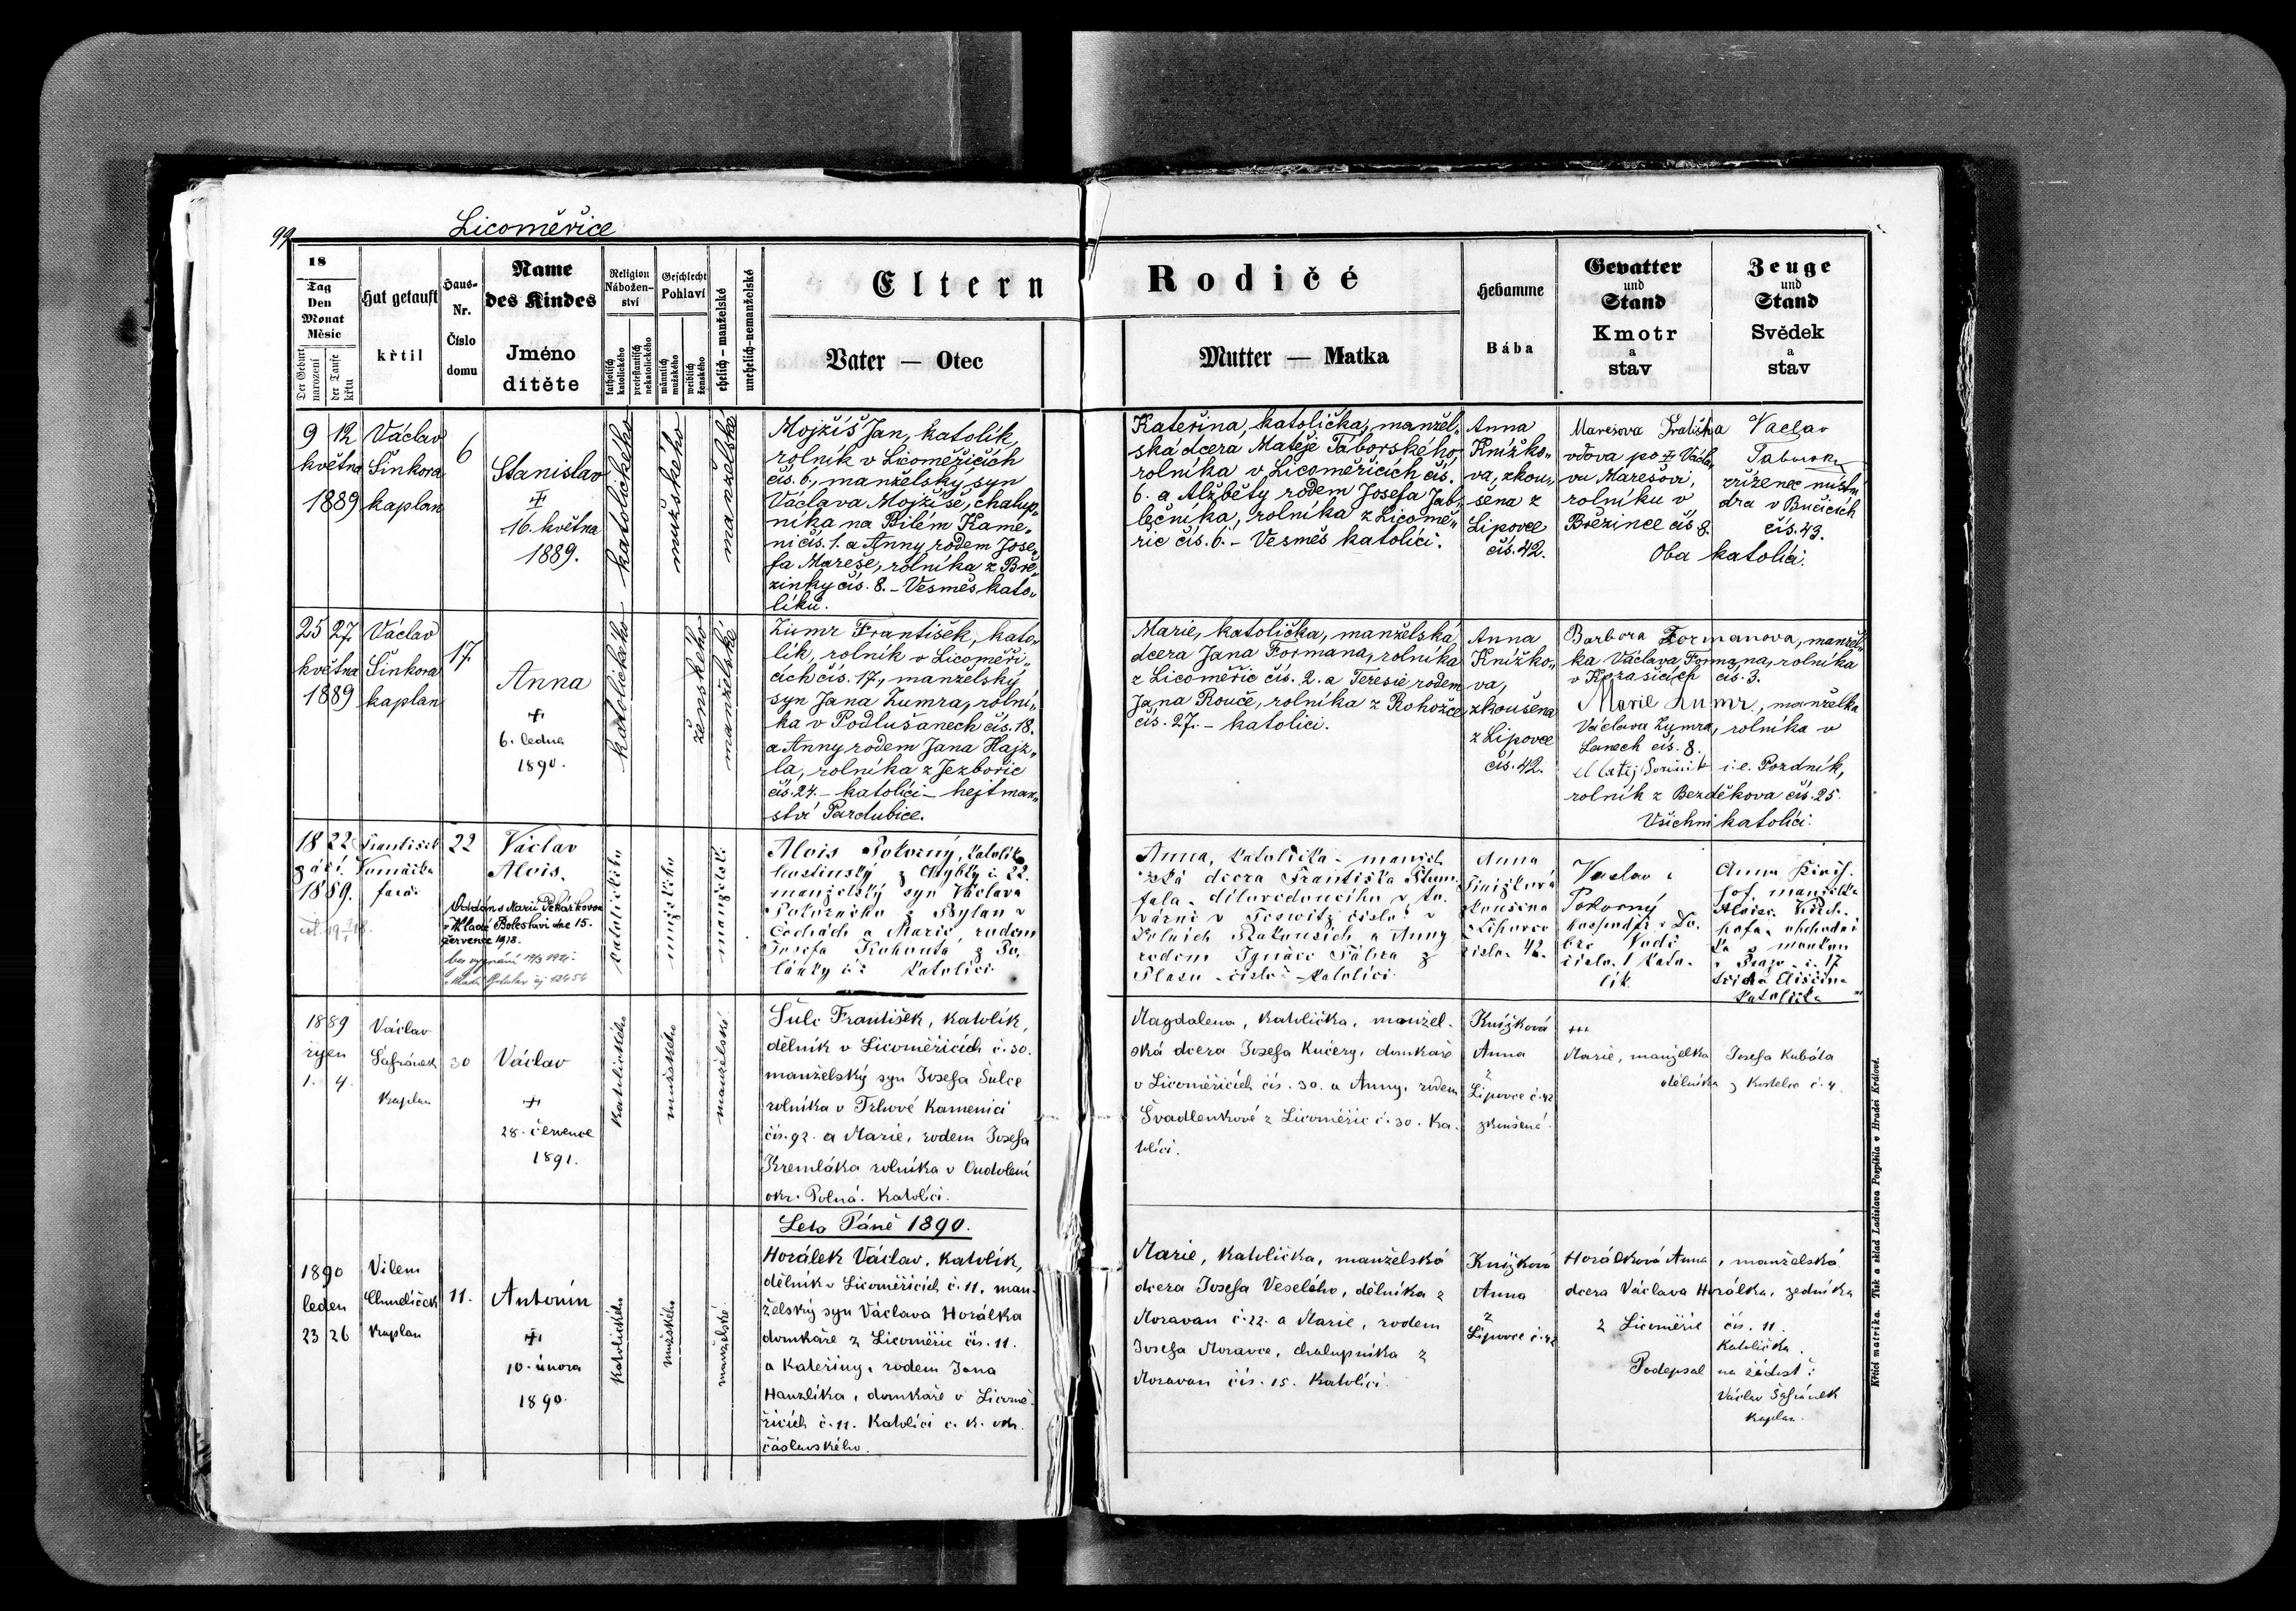 99
Licoměřice
18
Tag
Den
Monat
Měsíc
Der Geburt
narození
der Taufe
křtu
Hat getauft
křtil
Haus-
Nr.
Číslo
domu
Name
des Kindes
Jméno
dítěte
Religion
Nábožen-
ství
katholisch
katolického
protestantisch
nekatolického
Geschlecht
Pohlaví
männlich
mužského
weiblich
ženského
ehelich – manželské
unehelich-nemanželské
Eltern
Rodičé
Vater — Otec
Mutter — Matka
Hebamme
Bába
Gevatter
und
Stand
Kmotr
a
stav
Zeuge
und
Stand
Svědek
a
stav
9 12
května
1889
Václav
Šinkora
kaplan
6
Stanislav
16. května
1889.
katolického
mužského
manželské
Mojžíš Jan, katolík,
rolník v Licoměřicích
čís. 6., manželský syn
Václava Mojžíše, chalup-
níka na Bílém Kame-
ni čís. 1. a Anny rodem Jose-
fa Mareše, rolníka z Bře-
zinky čís. 8. - Vesměs kato-
líků.
Kateřina, katolička, manžel-
ská dcera Matěje Táborského,
rolníka v Licoměřicích čís.
6. a Alžběty rodem Josefa Jab-
lečníka, rolníka z Licomě-
řic čís. 6. - Vesměs katolíci.
Anna
Knížko-
va, zkou-
šena z
Lipovce
čís. 42.
Marešova
vdova po Václa-
vu Marešovi,
rolníku v
Březince čís 8.
Václav
zřízenec
dra v Bučicích
čís. 43.
Oba katolíci.
25 27.
května
1889
Václav
Šinkora
kaplan
17
Anna
6. ledna
1890.
katolického
ženského
manželské
Zumr František, kato-
lík, rolník v Licoměři-
cích čís. 17., manželský
syn Jana Zumra, rolní-
ka v Podlušanech čís. 18.
a Anny rodem Jana Hajz-
la, rolníka z Jezbořic
čís. 24. - katolíci - hejtman-
ství Pardubice.
Marie, katolička, manželská
dcera Jana Formana, rolníka
z Licoměřic čís. 2. a Terezie rodem
Jana Rouče, rolníka z Rohožce
čís. 27. - katolíci.
Anna
Knížko-
va,
zkoušena
z Lipovce
čís. 42.
Barbora Formanova, manžel-
ka Václava Formana, rolníka
v čís. 3.
Marie Zumr, manželka
Václava Zumra, rolníka v
Lanech čís. 8.
Matěj i.e. Pozdník,
rolník z Bezděkova čís. 25.
Všichni katolíci.
18 22
září
1889.
František
farář
22
Václav
Alois.
Oddán s Marií Pekárkovou
v Mladé Boleslavi dne 15.
července 1918.
katolického
mužského
manželské
Alois Pokorný, katolík
hostinský z
manželský syn Václava
Pokorného z Bylan v
Čechách a Marie, rodem
Josefa Kohouta, z Po-
lánky č: katolíci
Anna, katolička, manžel-
ská dcera Františka
továrně v číslo? v
Dolních Rakousích a Anny
rodem Ignáce z
Plasu - číslo? - katolíci.
Anna
Knížková
zkoušena
z Lipovce
číslo 42.
Václav
Pokorný
číslo 1 kato-
lík.
Anna
manželka
z Prahy č. 17
třída Eliščina
katolička
1889
říjen
1. 4.
Václav
Šafránek
kaplan
30
Václav
28. července
1891.
katolického
mužského
manželské
Šulc František, katolík,
dělník v Licoměřicích č. 30.
manželský syn Josefa Šulce
rolníka v Trhové Kamenici
čís. 92. a Marie, rodem Josefa
Kremláka rolníka v Oudolení
okr. Polná. Katolíci.
Magdalena, katolička, manžel-
ská dcera Josefa Kučery, domkáře
v Licoměřicích čís. 30. a Anny, rodem
Švadlenkové z Licoměřic č. 30. Ka-
tolíci.
Knížková
Anna
z
Lipovce č. 42
zkoušená
+++
Marie, manželka Josefa Kubáta
dělníka z Kostelce č. 4.
Leta Páně 1890.
1890
leden
23 26
Vilém
Chmelíček
kaplan
11.
Antonín
10. února
1890.
katolického
mužského
manželské
Horálek Václav, katolík,
dělník v Licoměřicích č. 11, man-
želský syn Václava Horálka
domkáře z Licoměřic čís. 11.
a Kateřiny, rodem Jana
Hanzlíka, domkáře v Licomě-
řicích č. 11. Katolíci c. k. okr.
čáslavského.
Marie, katolička, manželská
dcera Josefa Veselého, dělníka z
Moravan č. 22. a Marie, rodem
Josefa Moravce, chalupníka z
Moravan čís. 15. Katolíci.
Knížková
Anna
z
Lipovce č. 42
Horálková Anna, manželská
dcera Václava Horálka, zedníka
z Licoměřic čís. 11.
Katolička.
Podepsal na žádost:
Václav Šafránek
kaplan.
Křticí matrika. Tisk a sklad Ladislava Pospíšila v Hradci Králové.